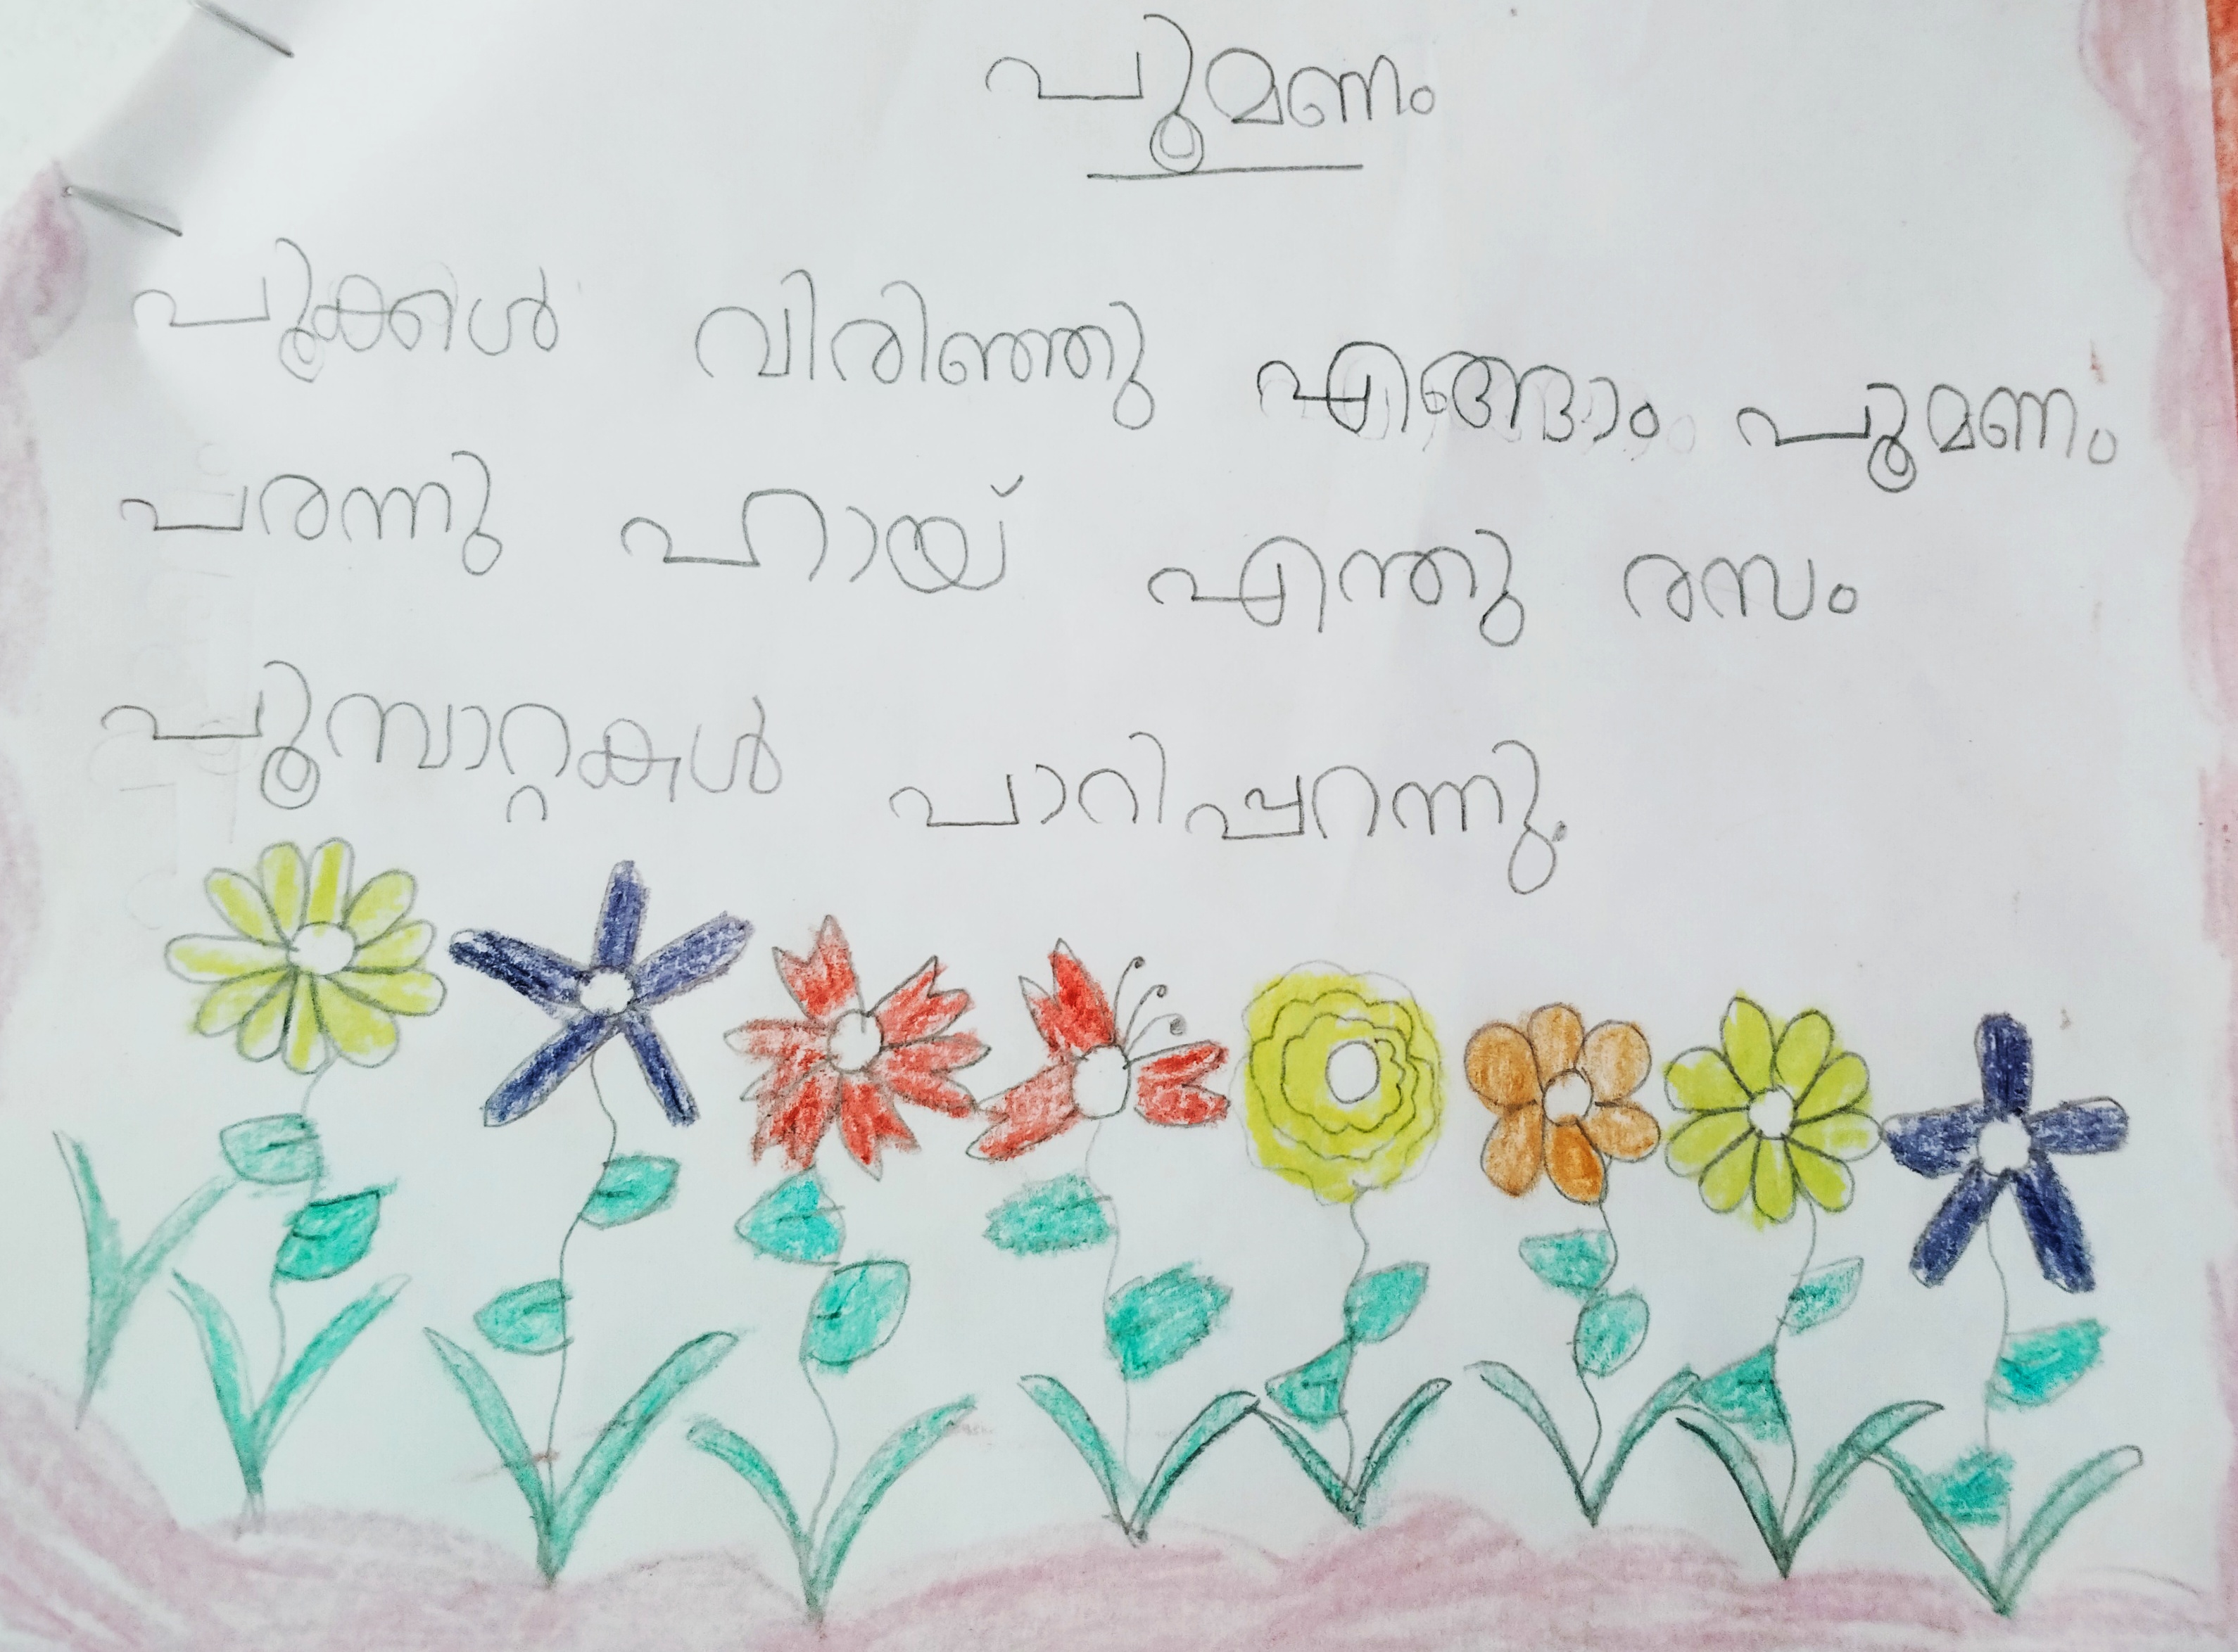 പൂമണം
പൂക്കൾ വിരിഞ്ഞു എങ്ങാം പൂമണം
പരന്നു ഹായ് എന്തു രസം
പൂമ്പാറ്റകൾ പാറിപ്പറന്നു.